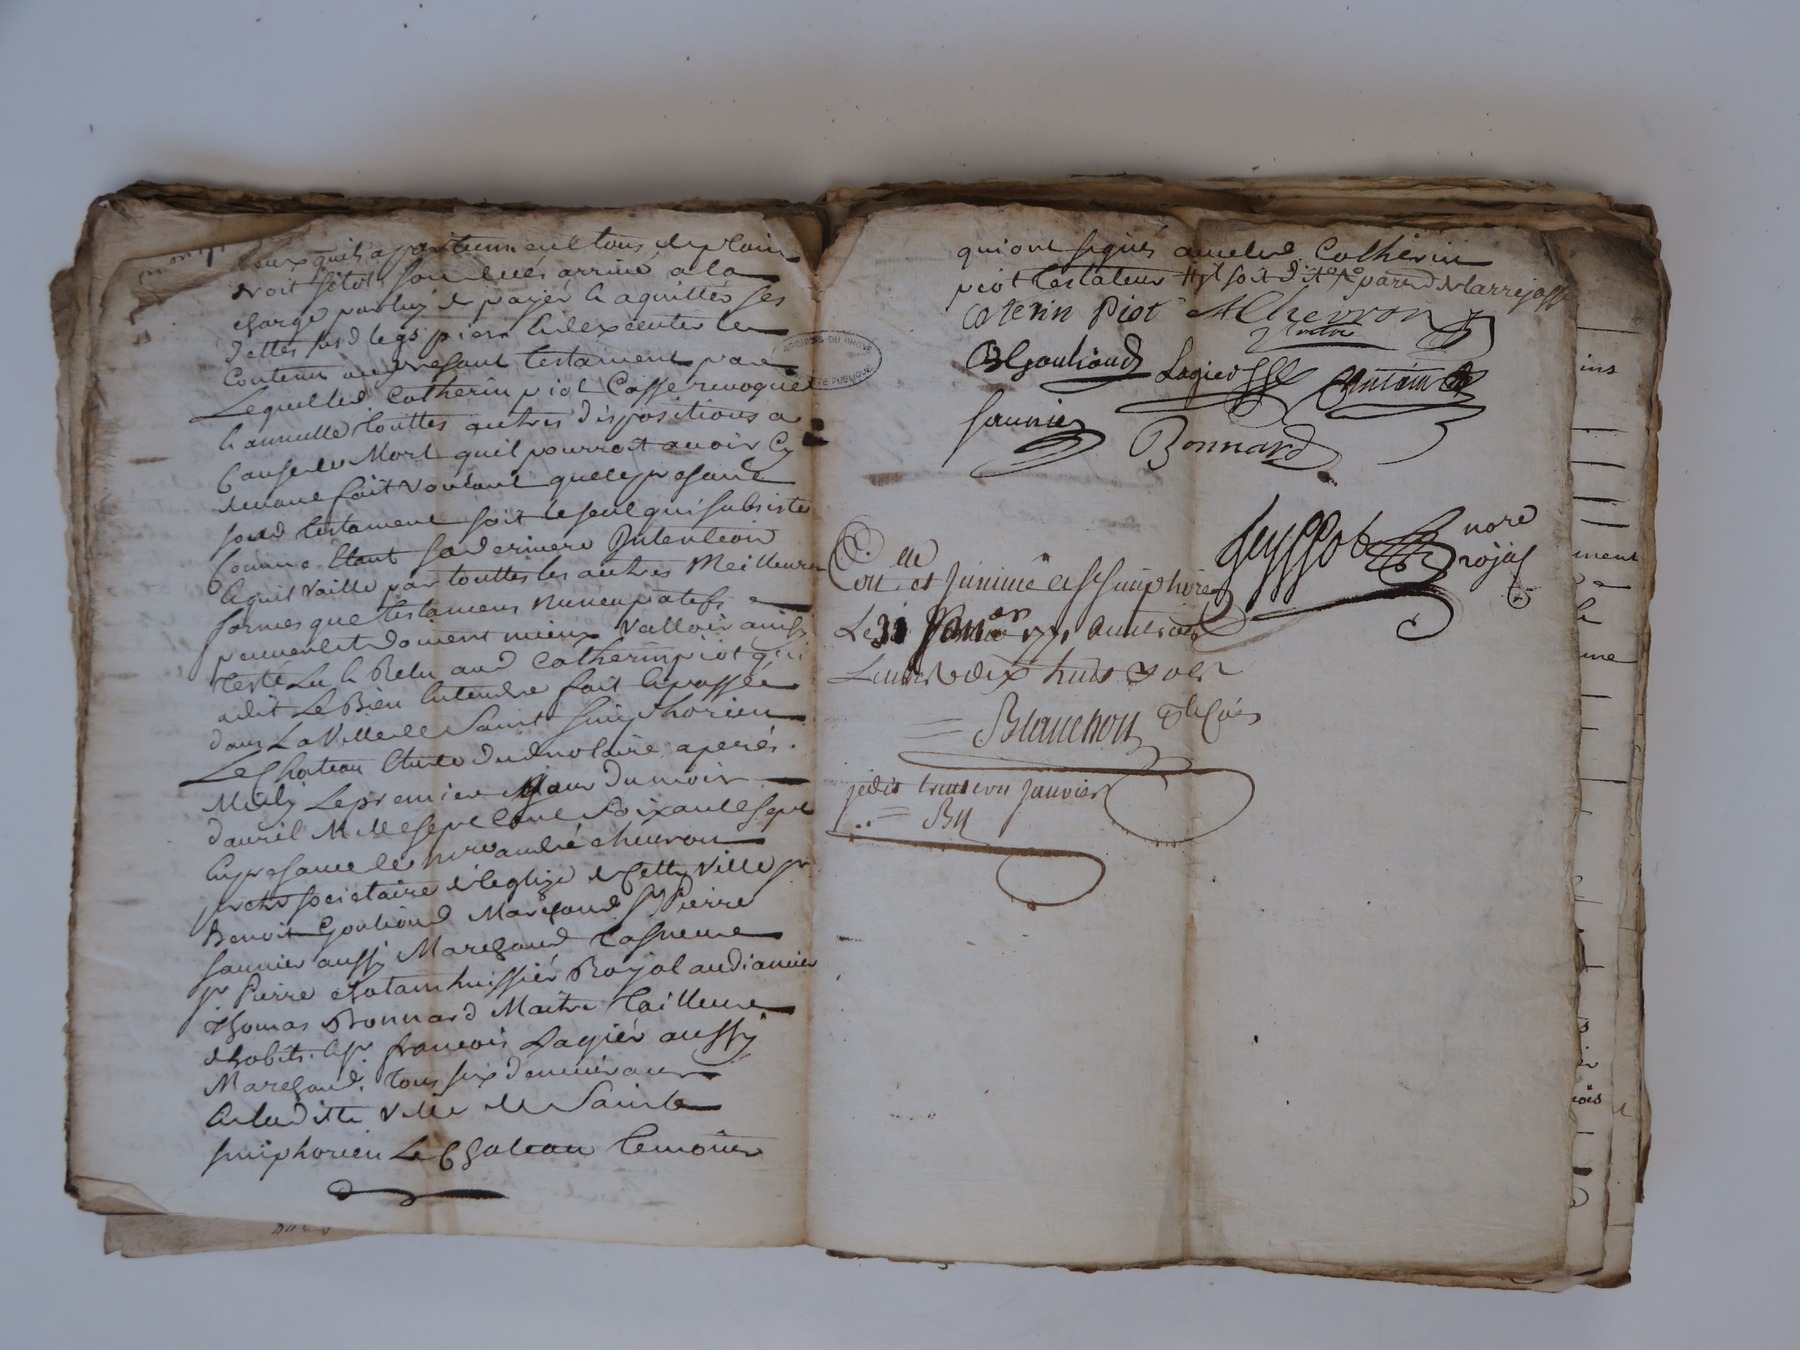 ceux qui luy appartiennent tous de plain
droit sitot son deces arrivé a la
charge par luy de payer et aquitter ses
dettes legs pies et dexecuter le
contenu au present testament par
Lequel led Catherin piot Casse revoque
et annulle touttes autres dispositions a
Cause de Mort quil pourroit avoir Cy
devant fait voulant que le present
sond testament soit le seul qui subsiste
comme etant sa derniere Intention
et quil vaille par touttes les autres Meilleures
formes que testamens nuncupatifs
peuvent et doivent mieux valloir ainsi
testé Lu et Relu aud Catherin piot qui
a dit Le Bien Entendre fait et passé
dans La Ville de Saint Simphorien
Le Chateau Etude dud notaire apres
Midy Le premier jour du mois
davril Mille sept Cent Soixante sept
En presence de mre andré chevron
pretre societaire de leglize de Cette Ville sr
Benoit Goutioud Marchand sr Pierre
saunier aussy Marchand
sr Pierre huissier Royal audiancier
Thomas Bonnard Maitre tailleur
dhabits et sr francois Lagier aussy
Marchand tous six demeurant
En laditte Ville de Saint
Simphorien Le Chateau temoins
qui ont signés avec led Catherin
piot testateur
Caterin Piot A Chevron
ptre
B Goutioud Lagier
saunier Bonnard
nore
royal
Con lé et a St Simphorien
Le 31 Janer 1771
Livres dix huit sols
= Blanchon
je dis trente un Janvier
= Bn
ARCHIVES DU RHONE